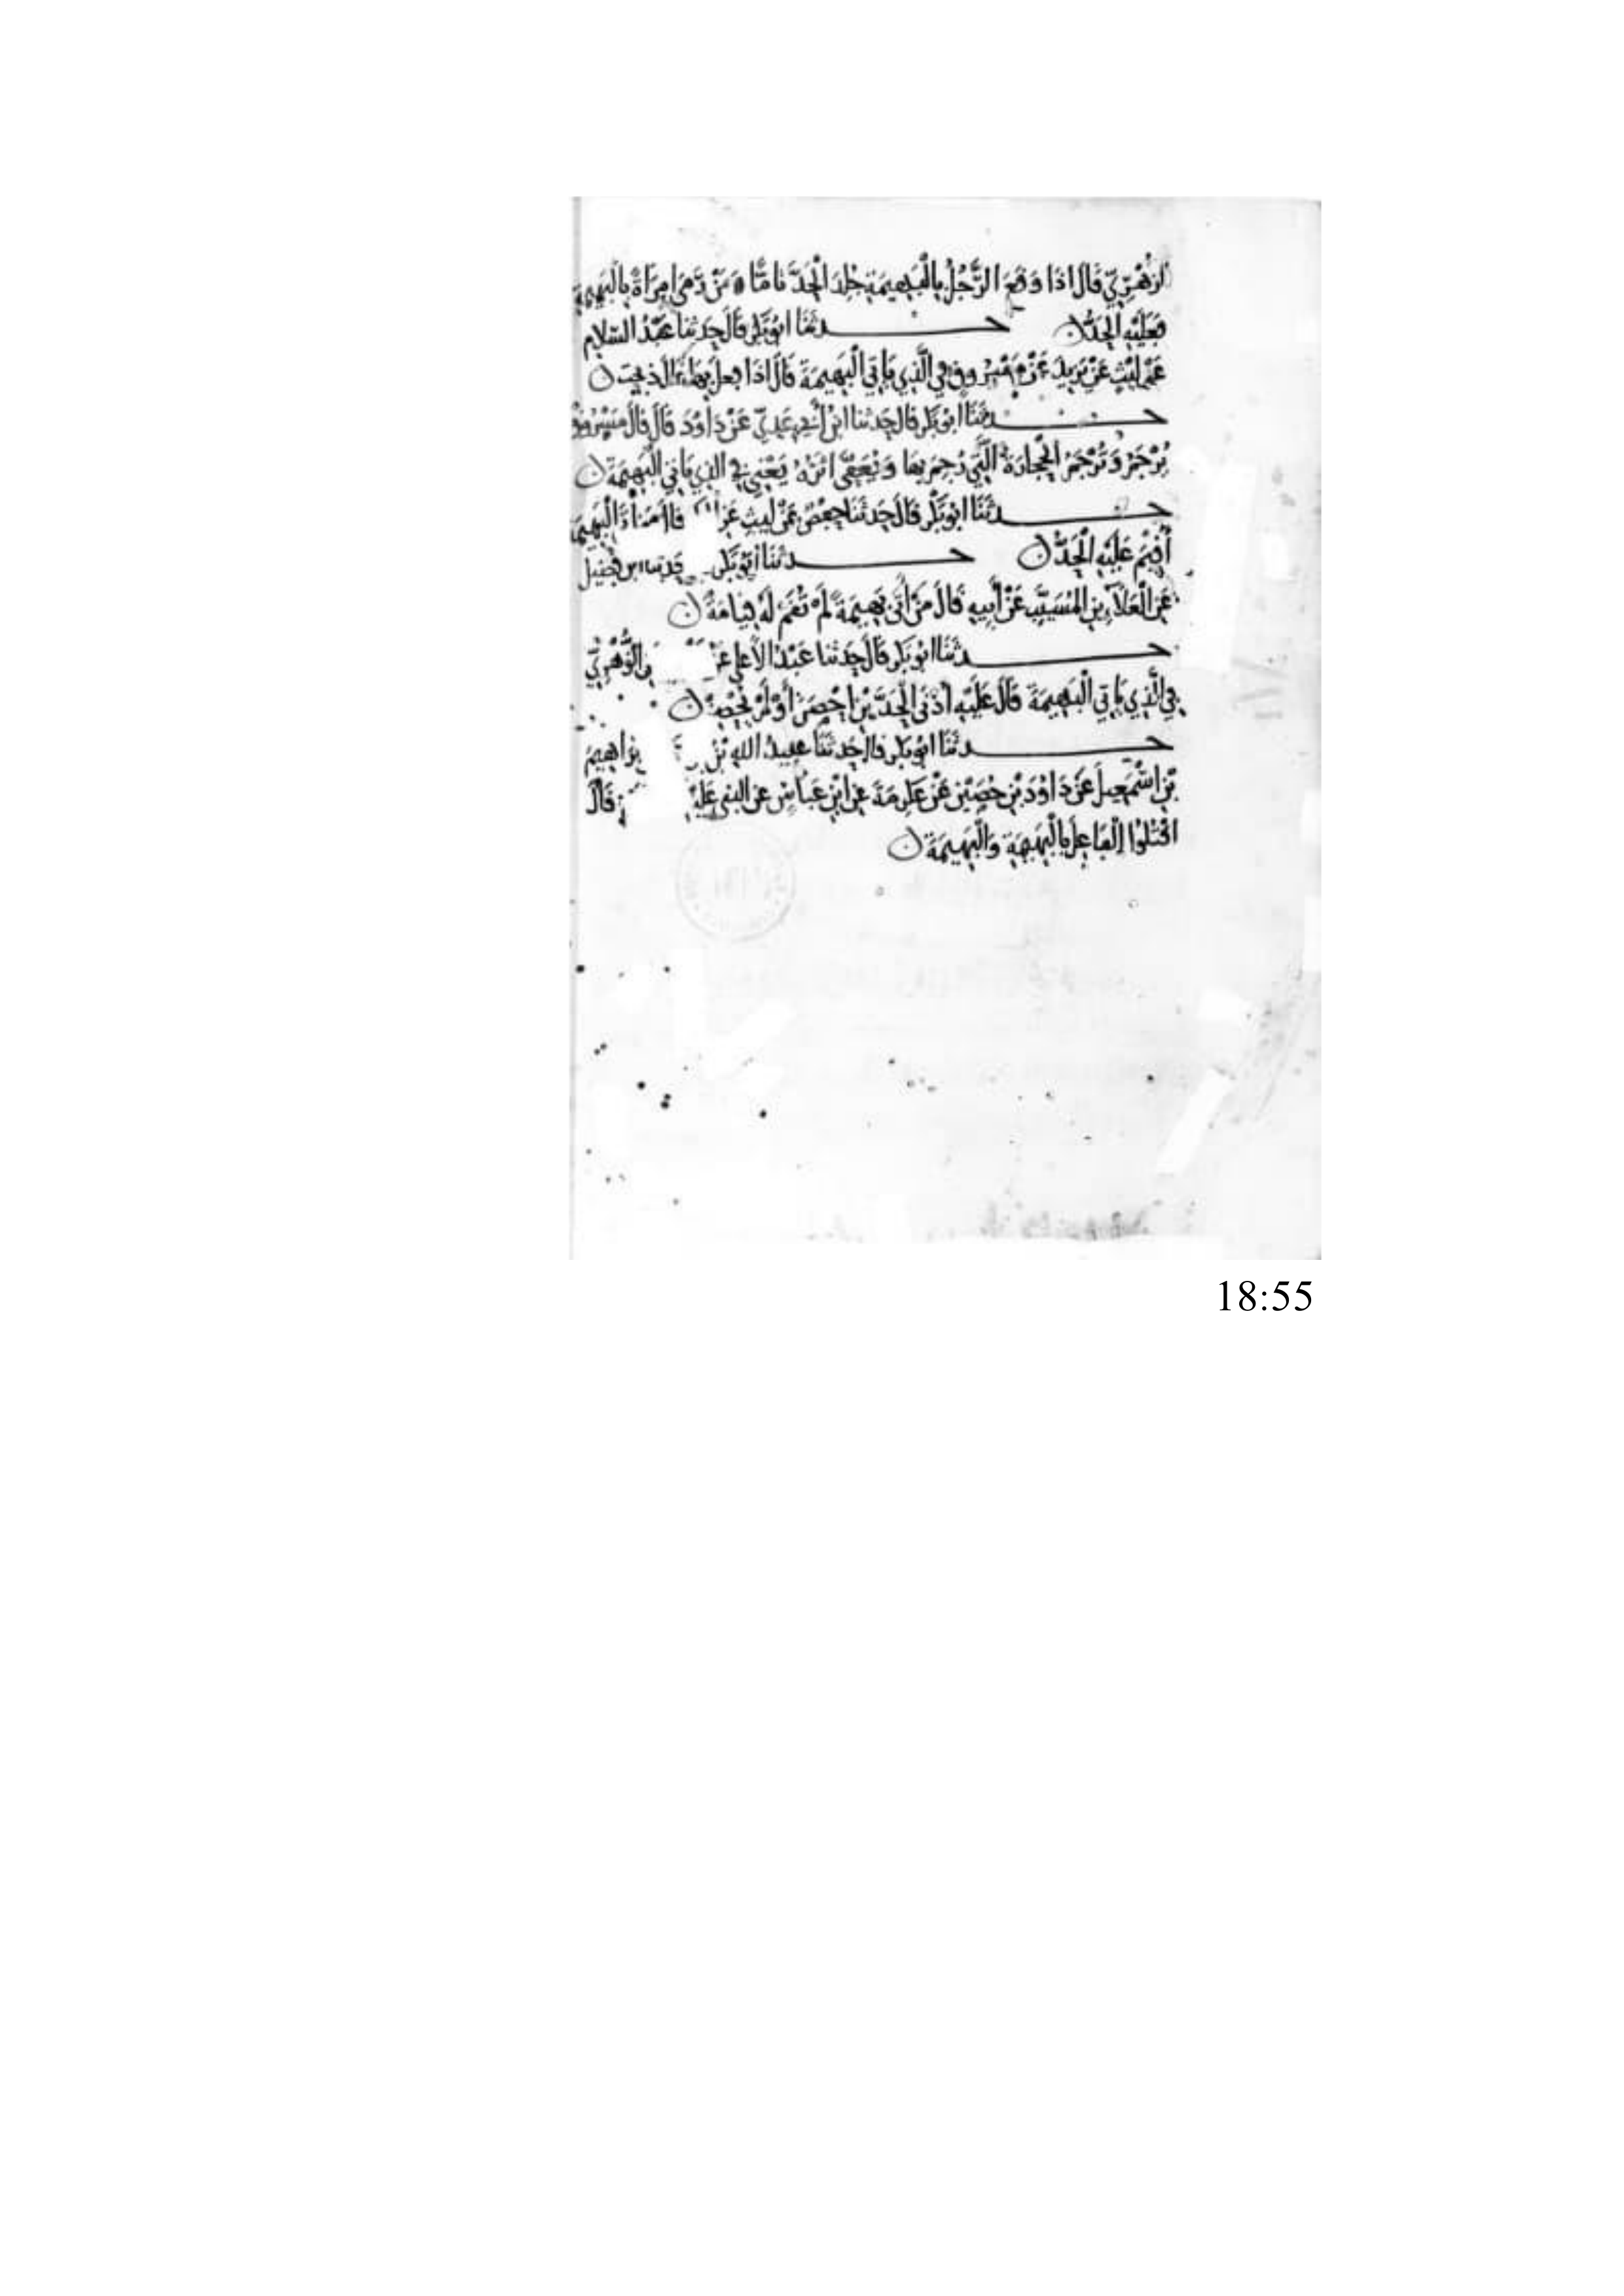 الزُّهْرِيِّ قَالَ اذَا وَقَعَ الرَّجُلُ بِالْبَهِيمَةِ جُلِدَ الْحَدَّ تَامًّا وَمَنْ رَمَى امرَاةً بِالْبَهِيمَةِ
فَعَلَيْهِ الْحَدُّ حدثَنَا ابُو بَكْرٍ قَالَ حَدثنا عَبْدُ السَّلَامِ
عَنْ لَيْثٍ عَنْ يَزِيدَ عَنْ مَسْرُوقٍ فِي الَّذِي يَاتِي الْبَهِيمَةَ قَالَ اذَا فعل بِهَا ذبحت
حدثَنَا ابُو بَكْرٍ قال حَدثنا ابْنُ أَبِي عَدِيٍّ عَنْ دَاوُدَ قَالَ قَالَ مَسْرُوقٌ
يُرْجَمُ وَتُرْجَمُ الْحِجَارَةُ الَّتِي رُجِمَ بِهَا وَيُعَفَّى اثَرُهُ يَعْنِي فِي الذِي يَاتِي الْبَهِيمَةَ
حدثَنَا ابُو بَكْرٍ قَالَ حَدثَنَا حَفْصٌ عَنْ لَيْثٍ عَنْ قال مَنْ أَتَى الْبَهِيمَةَ
أُقِيمَ عَلَيْهِ الْحَدُّ حدثَنَا ابُو بَكْرٍ حَدثنا ابن فُضَيْل
عَنِ الْعَلَاءِ بْنِ الْمُسَيَّبِ عَنْ أَبِيهِ قَالَ مَنْ أَتَى بَهِيمَةً لَمْ تُقَمْ لَهُ قِيَامَةٌ
حدثَنَا ابُو بَكْرٍ قَالَ حَدثنا عَبْدُ الْأَعْلَى عَنْ الزُّهْرِيِّ
فِي الَّذِي يَاتِي الْبَهِيمَةَ قَالَ عَلَيْهِ أَدْنَى الْحَدَّيْنِ احْصِنَ أَوْ لَمْ يُحْصَنْ
حدثَنَا ابُو بَكْرٍ قال حَدثَنَا عبيد الله بْنُ ابراهيم
بْنِ اسْمَعِيلَ عَنْ دَاوُدَ بْنِ حُصَيْنٍ عَنْ عِكْرِمَةَ عَنِ ابْنِ عَبَّاسٍ عن النبي عَلَيْهِ قَالَ
اقْتُلُوا الْفَاعِلَ بِالْبَهِيمَةِ وَالْبَهِيمَةَ
18:55